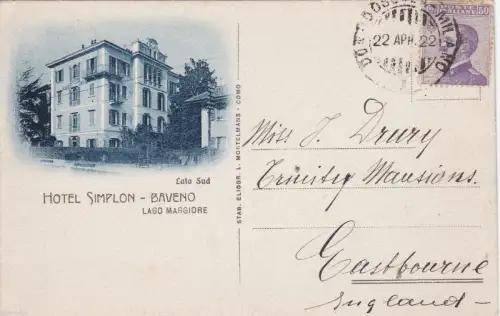 Lato Sud
HOTEL SIMPLON - BAVENO
LAGO MAGGIORE
STAB. ELIOGR. L. MOITELMANS - COMO
22 APR. 22
MILANO
50
Miss J. Drury
Trinity Mansions.
Eastbourne
England